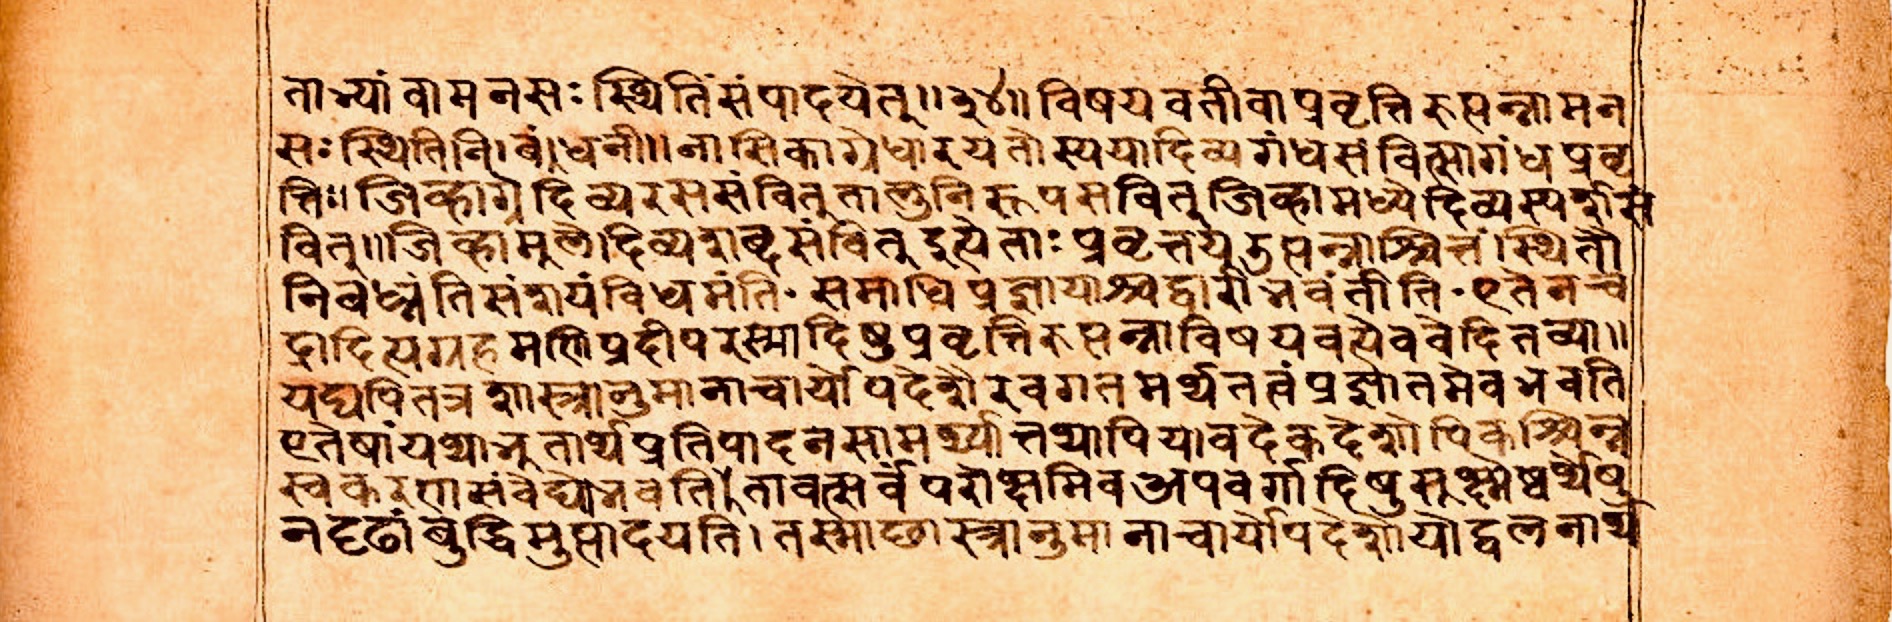 ताभ्यां वा मनसः स्थितिं संपादयेत् ॥३४॥ विषयवती वा प्रवृत्तिरुत्पन्ना मन
सः स्थितिनि।बं।धनी॥ नासिकाग्रे धारयतो स्य या दिव्यगंधसंवित्सा गंधप्रवृ
त्तिः॥ जिव्हाग्रे दिव्यरससंवित् तालुनि रूपसवित् जिव्हामध्ये दिव्यस्पर्शसं
वित्॥ जिव्हामुले।दिव्यशब्दसंवितुदुत्येताः प्रवृत्तय उत्पन्नाश्चित्तं। स्थितौ
निबध्नंति संशयं विधमंति· समाधिप्रज्ञायाश्च द्वारी भवंतीति· एतेन चं
द्रादित्यग्रहमणिप्रदीपरस्मादिषु प्रवृत्तिरुत्पन्ना विषयवत्येव वेदितव्या॥
यद्यपि तत्र शास्त्रानुमानाचार्योपदेशैरवगतमर्थतत्वं प्रज्ञातमेव भवति
एतेषां यथाभुतार्थप्रतिपादनसामर्थ्यात्तथापि यावदेकदेशोपि कश्चिन्न
स्वकरणसंवेद्यो भवति। तावत्सर्वं परोक्षमिव अपवर्गादिषु सुक्ष्मेष्वर्थेषु
न दृढां बुद्धिमुत्पादयति। तस्माछास्त्रानुमानाचार्योपदेशोयोद्वलनार्थ